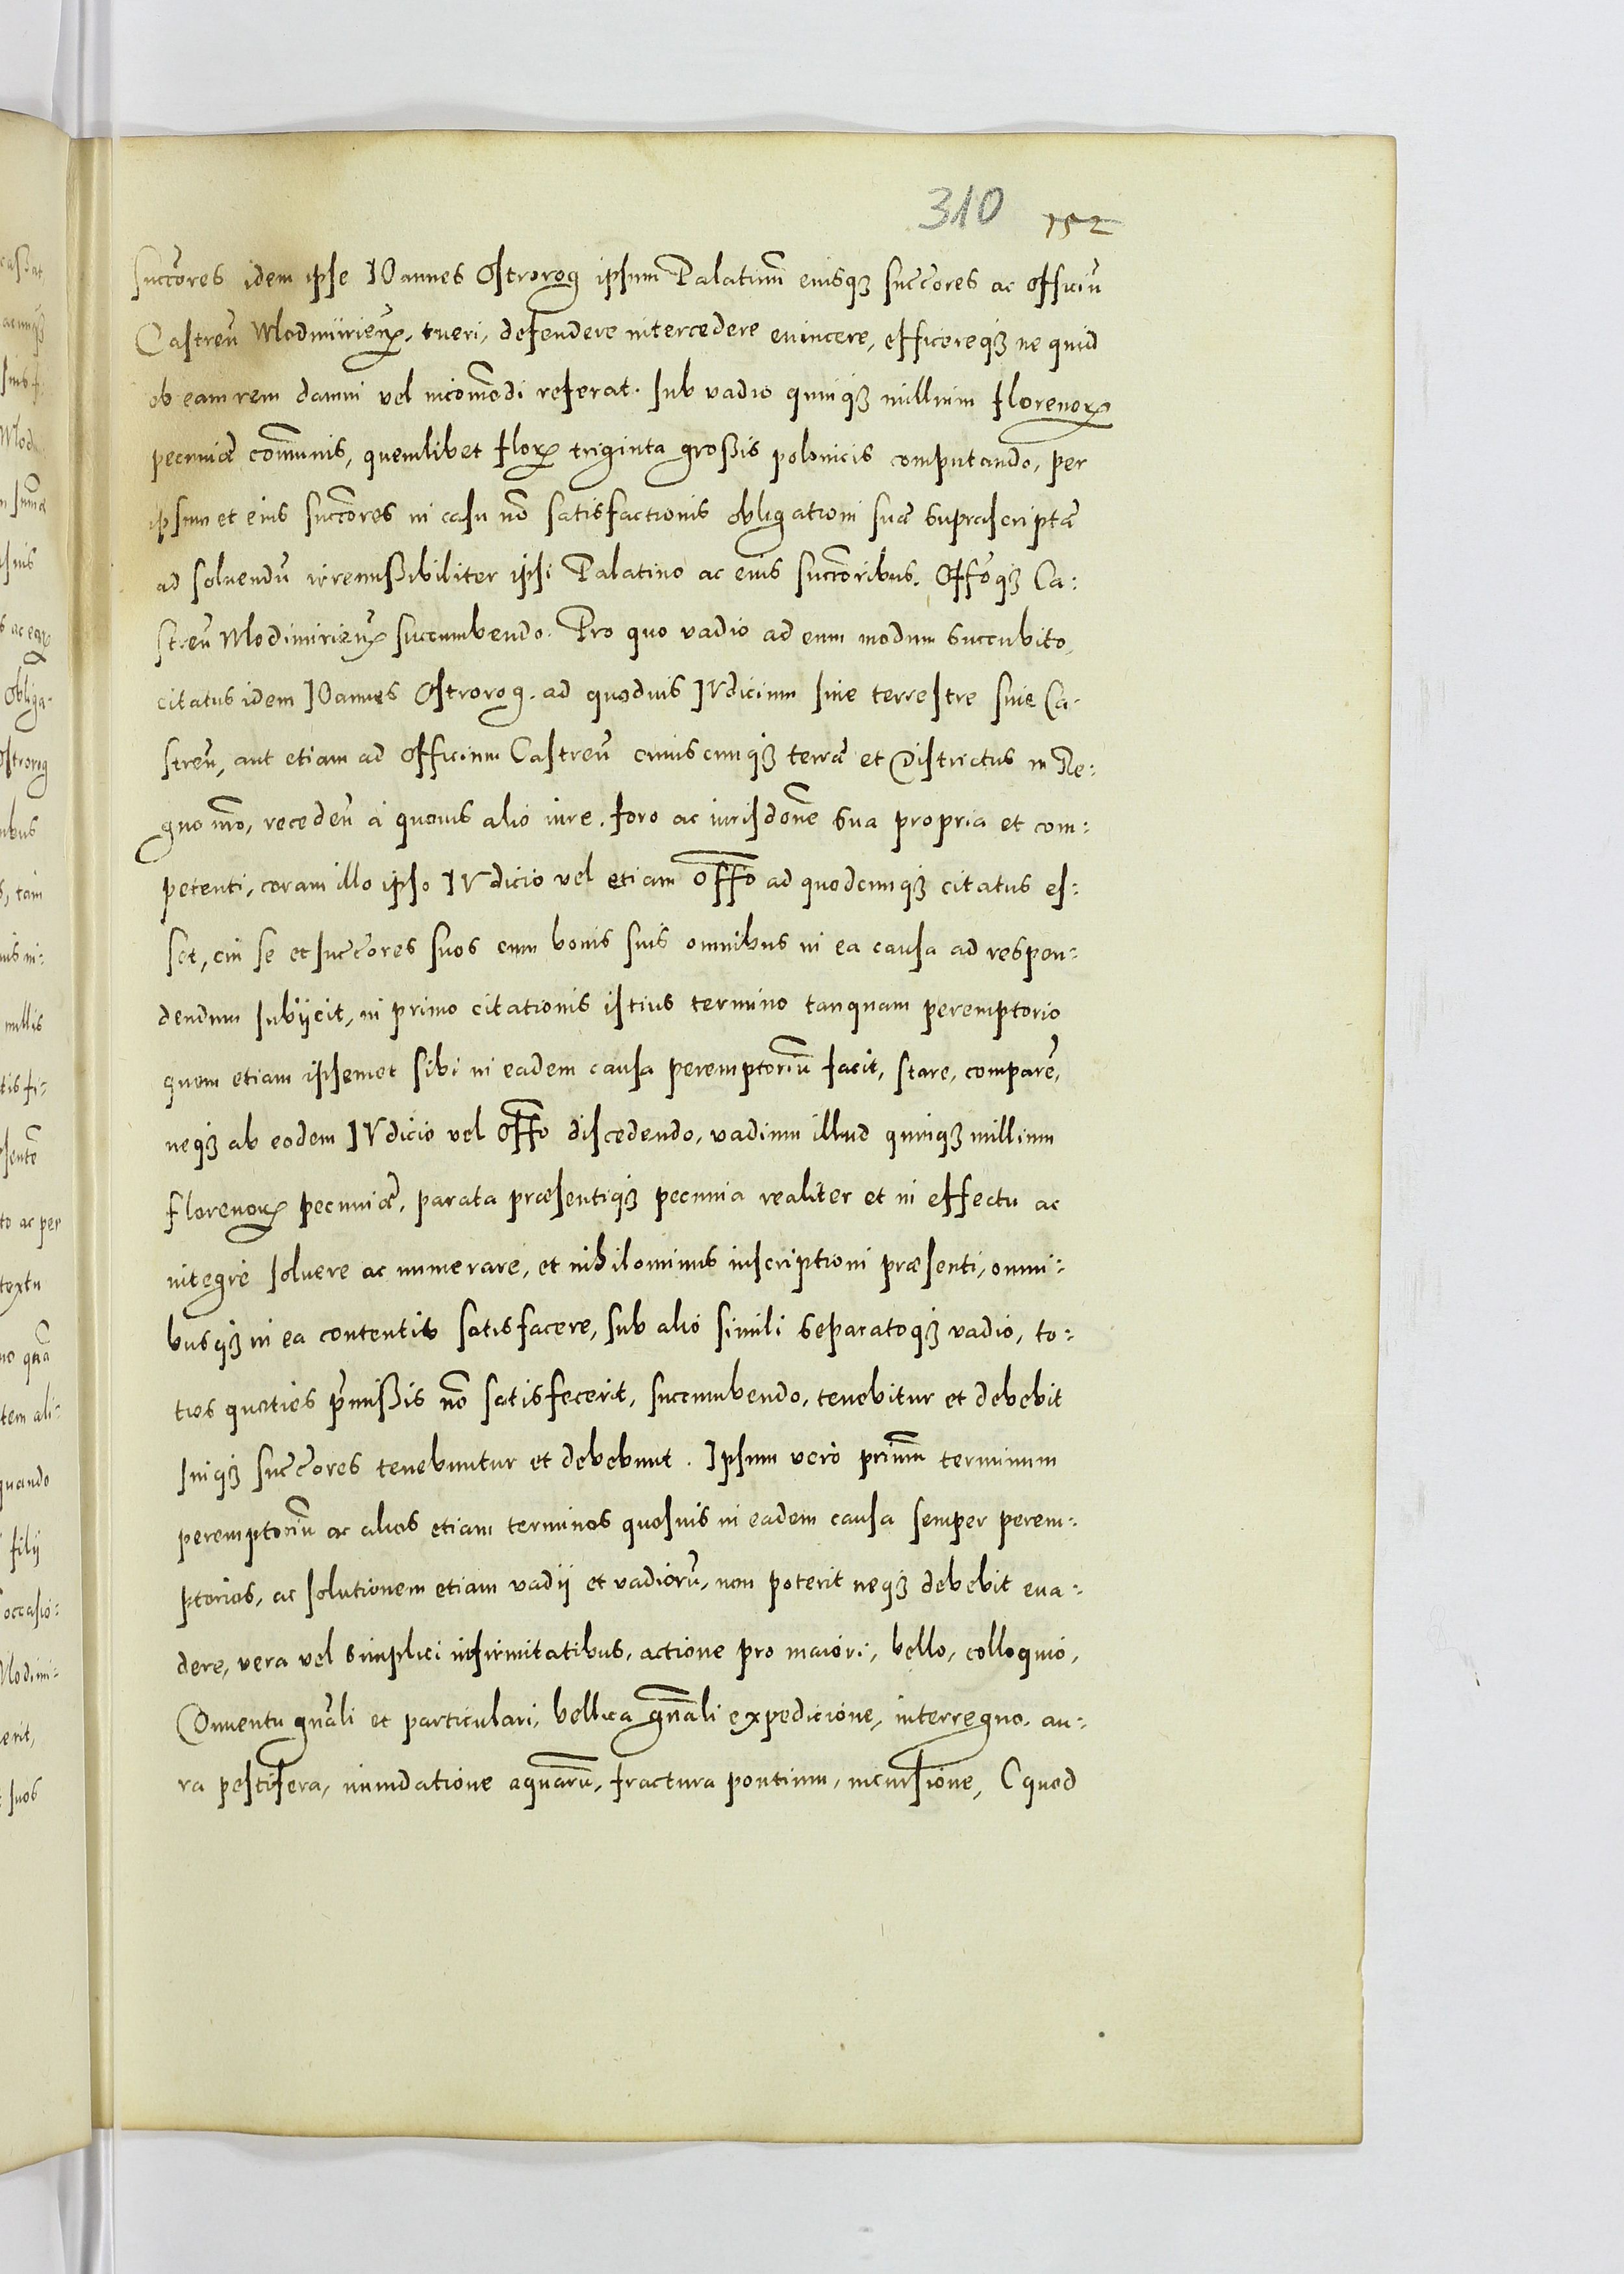 310 152
succores idem ipse IOannes Ostrorog ipsum Palatinũ eiusqꝫ succores ac officiũ
Castreñ Wlodimirieñ, tueri, defendere intercedere euincere, efficereqꝫ ne quid
ob eam rem damni vel incom̃odi referat. sub vadio quinqꝫ millium florenorꝝ
pecuniæ com̃unis, quemlibet florꝝ triginta großis polonicis computando, per
ipsum et eius succores in casu nõ satisfactionis obligationi suæ supraꞅcriptæ
ad soluendũ irremißibiliter ipsi Palatino ac eius succoribus. Offoqꝫ Ca:
streñ Wlodimirieñ succumbendo. Pro quo vadio ad eum modum succubito,
citatus idem IOannes Ostrorog. ad quoduis IVdicium siue terrestre siue Ca:
streñ, aut etiam ad Officium Castreñ cuiuscunqꝫ terræ et Districtus in Re:
gno iño, recedeñ à quouis alio iure. foro ac iurisdõne sua propria et com:
petenti, coram illo ipso IVdicio vel etiam offo ad quodcunqꝫ citatus es:
set, cui se et succores suos cum bonis suis omnibus in ea causa ad respon:
dendum subijcit, in primo citationis istius termino tanquam peremptorio
quem etiam ipsemet sibi in eadem causa peremptoriũ facit, stare, comparẽ,
neqꝫ ab eodem IVdicio vel offo discedendo, vadium illud quinqꝫ millium
florenorꝝ pecuniæ, parata præsentiqꝫ pecunia realiter et in effectu ac
integrè soluere ac numerare, et nihilominus inscriptioni præsenti, omni:
busqꝫ in ea contentis satisfacere, sub alio simili separatoqꝫ vadio, to:
ties quoties p̃mißis nõ satisfecerit, succumbendo, tenebitur et debebit
suiqꝫ succores tenebuntur et debebunt. Ipsum verò primũ terminum
peremptoriũ ac alios etiam terminos quosuis in eadem causa semper perem:
ptorios, ac solutionem etiam vadij et vadiorũ, non poterit neqꝫ debebit eua:
dere, vera vel simplici infirmitatibus, actione pro maiori, bello, colloquio,
Conuentu gnãli et particulari, bellica gnãli expedicione, interregno. au:
ra pestifera, inundatione aquarũ, fractura pontium, incursione, (quod